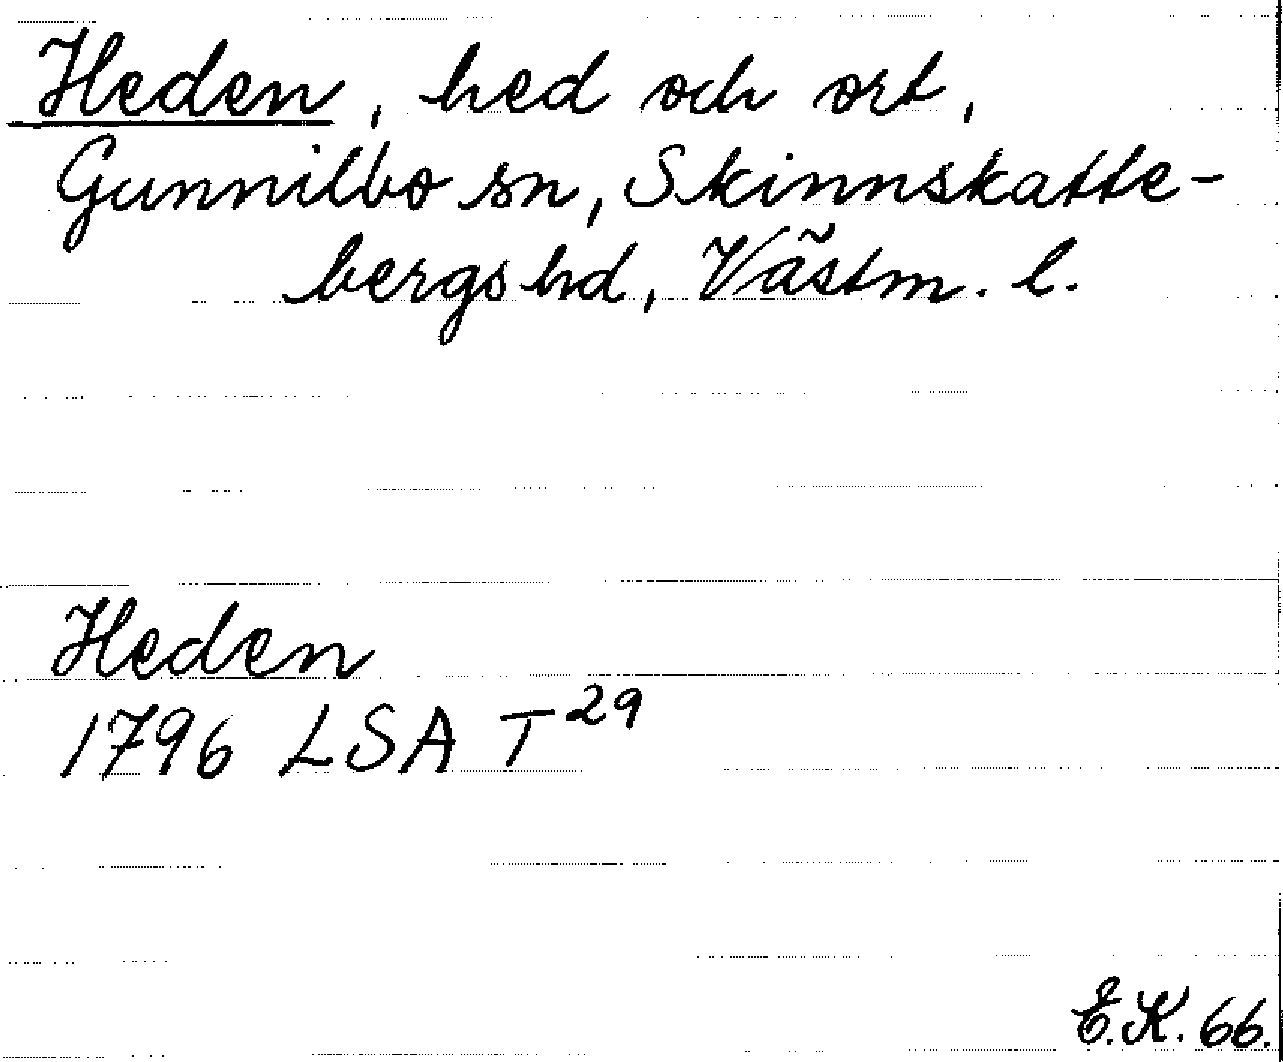 Heden, hed och ort,
Gunnilbo sn, Skinnskatte-
bergs hd, Västm. l.
Heden
1796 LSA T²⁹
E.K. 66.